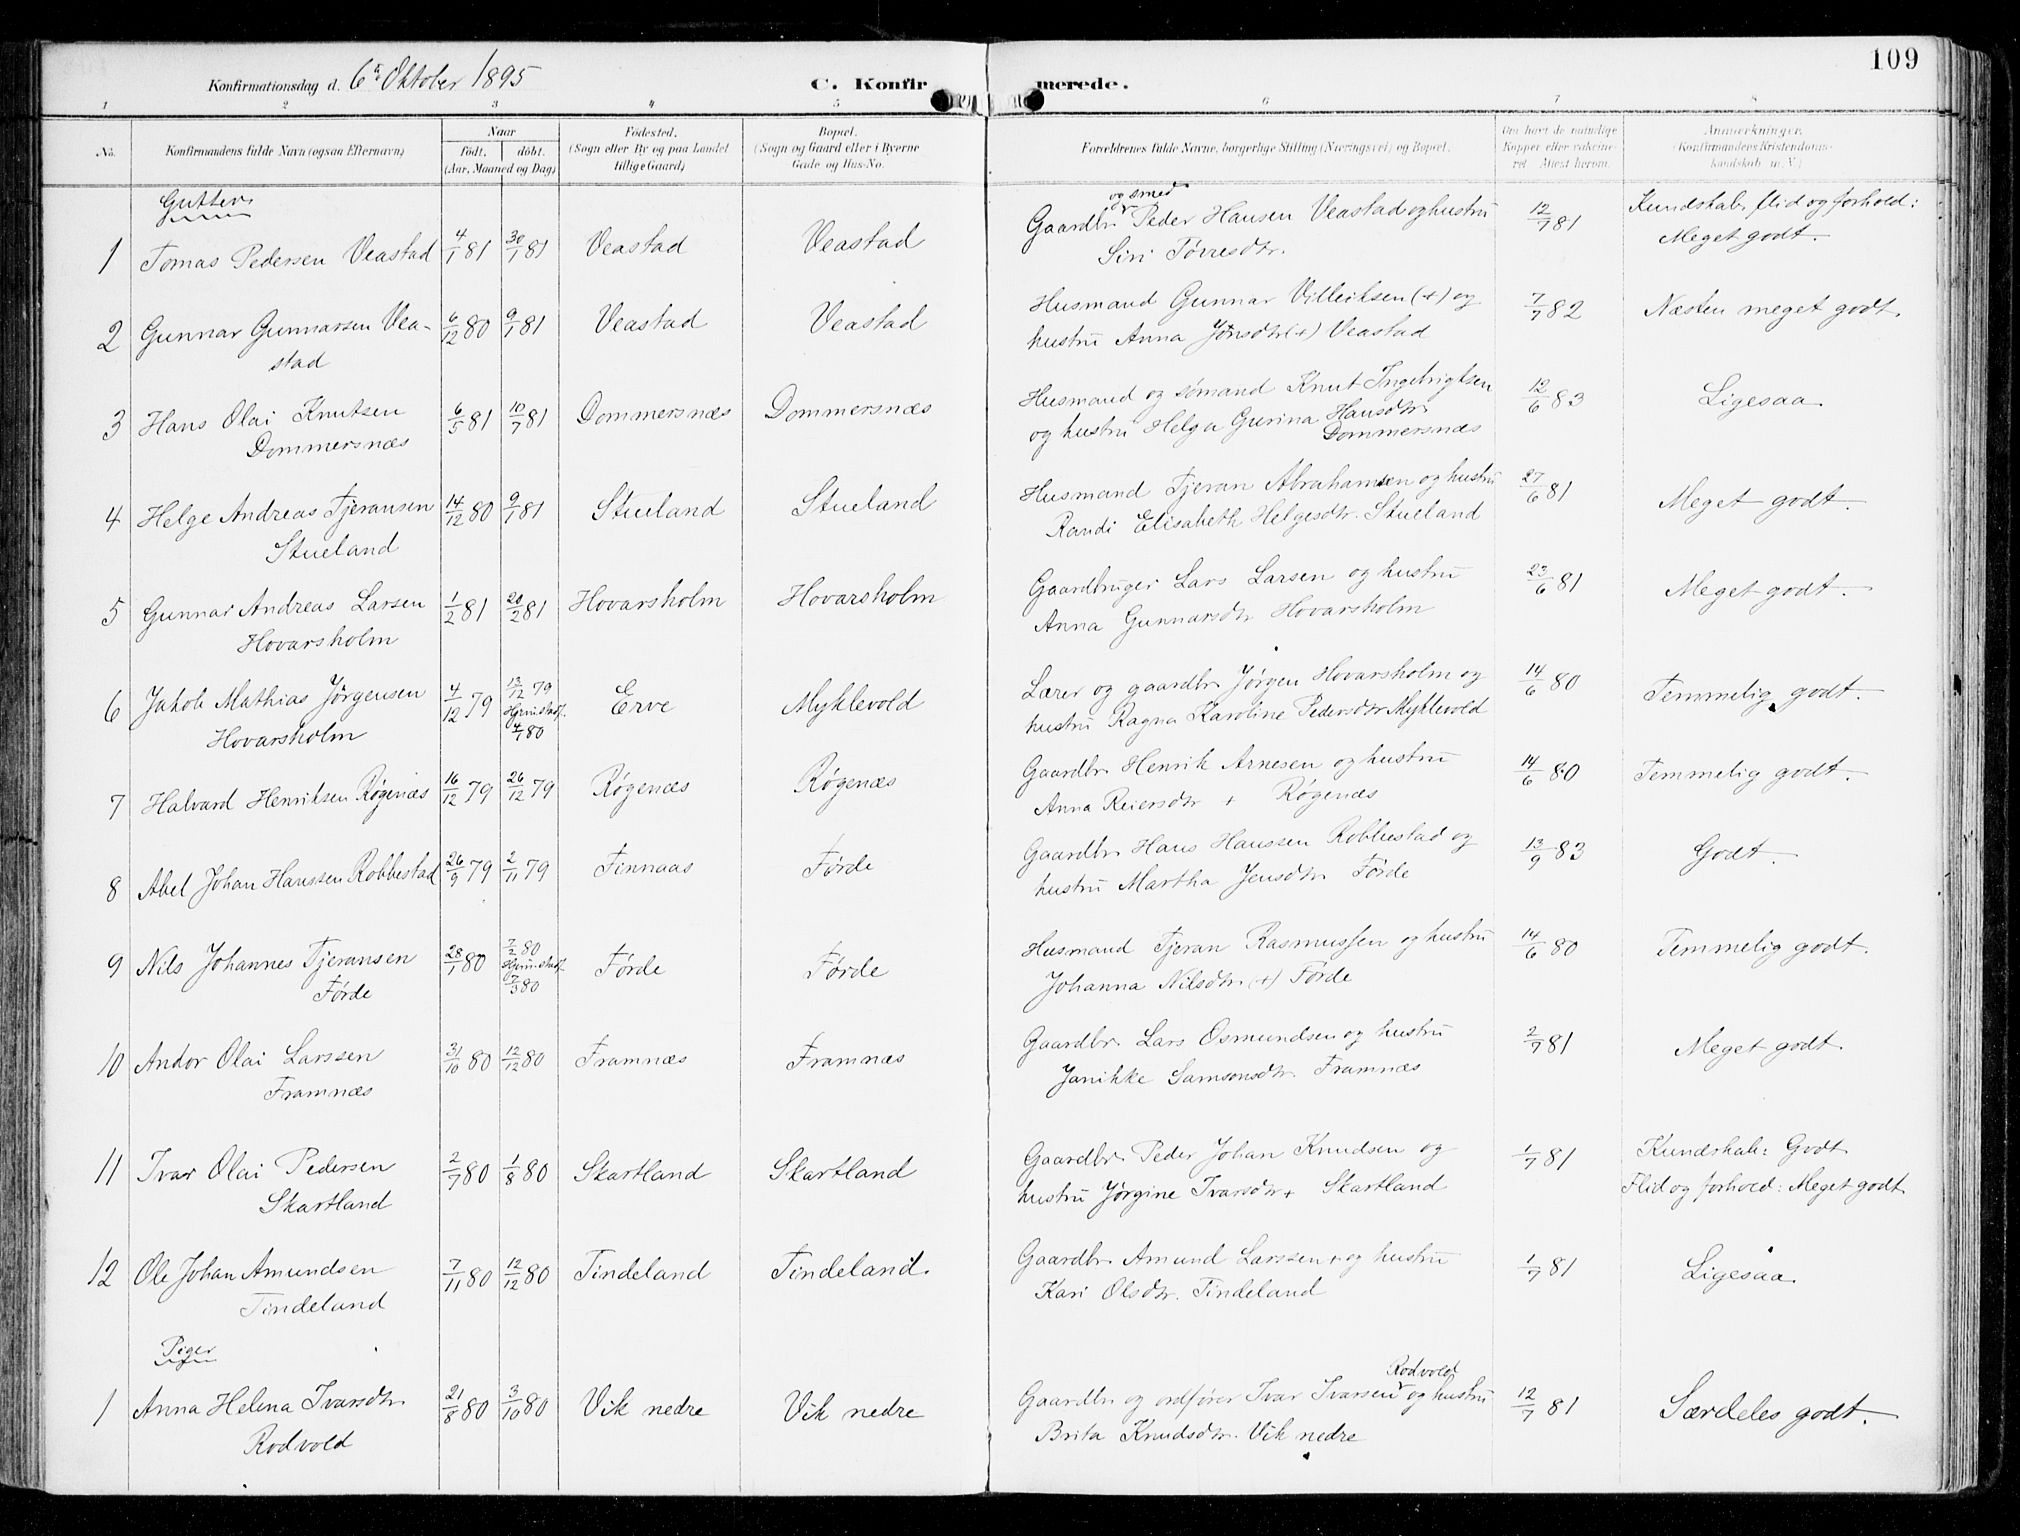 109
Konfirmationsdag d. 6te Oktober 1895 C. Konfirmerede.
1 2 3 4 5 6 7 8
No. Konfirmandens fulde Navn (ogsaa Efternavn) Naar Født. døbt. (Aar, Maaned og Dag) Fødested. (Sogn eller By og paa Landet tillige Gaard) Bopæl. (Sogn og Gaard eller i Byerne Gade og Hus-No. Forældrenes fulde Navne, borgerlige Stilling (Næringsvei) og Bopæl. Om havt de naturlige Kopper eller vaccineret Attest herom. Anmerkninger. (Konfirmandens Kristendomskundskab m. V.)
Gutter
1 Tomas Pedersen Veastad 4/1 81 30/1 81 Veastad Veastad Gaardbr. og smed Peder Hansen Veastad og hustru 12/7 81 Kundskab, flid og forhold:
Siri Tørresdtr. Meget godt.
2 Gunnar Gunnarsen Vea- 6/12 80 9/1 81 Veastad Veastad Husmand Gunnar Villeiksen (+) og 7/7 82 Næsten meget godt.
stad hustru Anna Jønsdtr (+) Veastad
3 Hans Olai Knutsen 6/5 81 10/7 81 Dommersnæs Dommersnæs Husmand og sømand Knut Ingebrigtsen 12/6 83 Ligesaa.
Dommersnæs og hustru Helga Gurina Hansdtr. Dommersnæs
4 Helge Andreas Tjeransen 14/12 80 9/1 81 Stueland Stueland Husmand Tjeran Abrahamsen og hustru 27/6 81 Meget godt.
Stueland Randi Elisabeth Helgesdtr. Stueland
5 Gunnar Andreas Larsen 1/2 81 20/2 81 Hovarsholm Hovarsholm Gaardbruger Lars Larsen og hustru 23/6 81 Meget godt.
Hovarsholm Anna Gunnarsdtr Hovarsholm
6 Jakob Mathias Jørgensen 4/12 79 13/12 79 Hjemstadf. 4/1 80 Erve Myklevold Lærer og gaardbr. Jørgen Hovarsholm og 14/6 80 Temmelig godt.
Hovarsholm hustru Ragna Karoline Pedersdtr Myklevold
7 Halvard Henriksen Røgenæs 16/12 79 26/12 79 Røgenæs Røgenæs Gaardbr. Henrik Arnesen og hustru 14/6 80 Temmelig godt.
Anna Reiersdtr + Røgenæs
8 Abel Johan Hanssen Robbestad 26/9 79 2/11 79 Finnaas Førde Gaardbr. Hans Hanssen Robbestad og 13/9 83 Godt.
hustru Martha Jensdtr. Førde
9 Nils Johannes Tjeransen 28/1 80 7/2 80 Hjemstadf. 7/3 80 Førde Førde Husmand Tjeran Rasmussen og hustru 14/6 80 Temmelig godt.
Førde Johanna Nilsdtr. (+) Førde
10 Andor Olai Larssen 31/10 80 12/12 80 Framnæs Framnæs Gaardbr. Lars Osmundsen og hustru 2/7 81 Meget godt.
Framnæs Janikke Samsonsdtr. Framnæs
11 Ivar Olai Pedersen 2/7 80 1/8 80 Skartland Skartland Gaardbr. Peder Johan Knudsen og 1/7 81 Kundskab: Godt
Skartland hustru Jørgine Ivarsdtr + Skartland Flid og forhold: Meget godt
12 Ole Johan Amundsen 7/11 80 12/12 80 Tindeland Tindeland. Gaardbr Amund Larssen + og hustru 1/7 81 Ligesaa.
Tindeland Kari Olsdtr. Tindeland
Piger
1 Anna Helena Ivarsdtr 21/8 80 3/10 80 Vik nedre Vik nedre Gaardbr og ordfører Ivar Ivarsen Rodvold og hustru 12/7 81 Særdeles godt.
Rodvold Brita Knudsdtr. Vik nedre